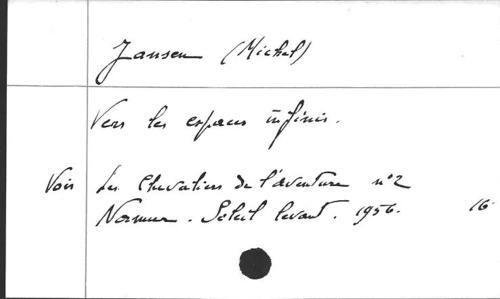 Jansen (Michel)
Vers les espaces infinis.
Voir Les Chevaliers de l'aventure n°2
Namur. Soleil levant. 1956. 16